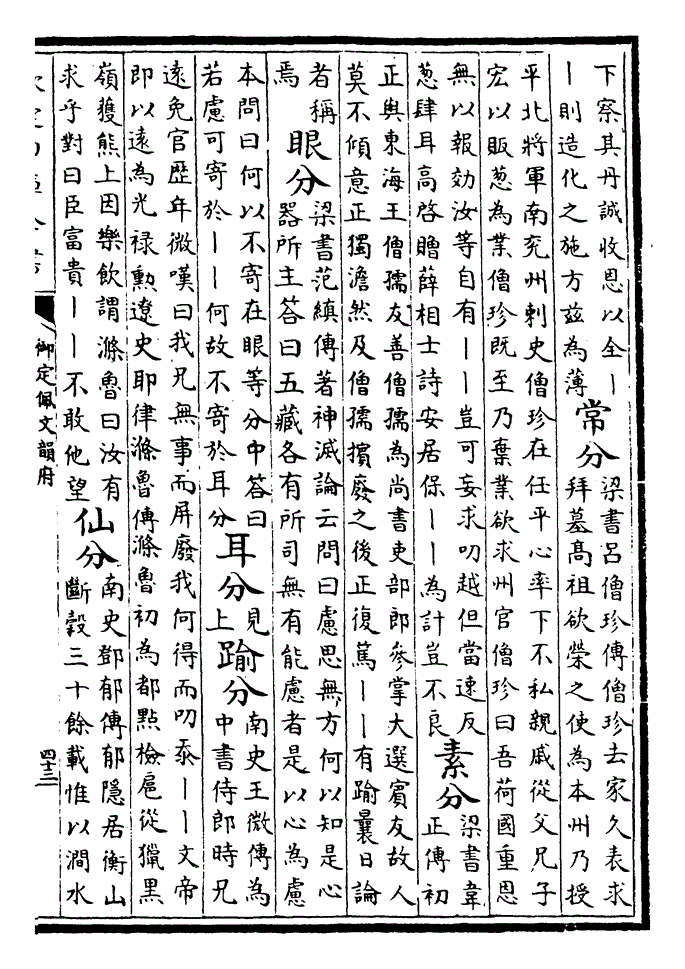 下察其丹誠收恩以全｜
｜則造化之施方兹為薄
常分
梁書吕僧珍傳僧珍去家久表求
拜墓髙祖欲榮之使為本州乃授
平北將軍南兖州刺史僧珍在任平心率下不私親戚從父兄子
宏以販葱為業僧珍既至乃棄業欲求州官僧珍曰吾荷國重恩
無以報効汝等自有｜｜豈可妄求叨越但當速反
葱肆耳高啓贈薛相士詩安居保｜｜為計豈不良
素分
梁書韋
正傳初
正與東海王僧孺友善僧孺為尚書吏部郎參掌大選賓友故人
莫不傾意正獨澹然及僧孺擯廢之後正復篤｜｜有踰曩日論
者稱
焉
眼分
梁書范縝傳著神滅論云問曰慮思無方何以知是心
器所主答曰五藏各有所司無有能慮者是以心為慮
本問曰何以不寄在眼等分中答曰
若慮可寄於｜｜何故不寄於耳分
耳分
見
上
踰分
南史王微傳為
中書侍郎時兄
遠免官歴年微嘆曰我兄無事而屏廢我何得而叨忝｜｜文帝
即以遠為光禄勲遼史耶律滌魯傳滌魯初為都點檢扈從獵黑
嶺獲熊上因樂飲謂滌魯曰汝有
求乎對曰臣富貴｜｜不敢他望
仙分
南史鄧郁傳郁隱居衡山
斷穀三十餘載惟以澗水
御定佩文韻府
四十三